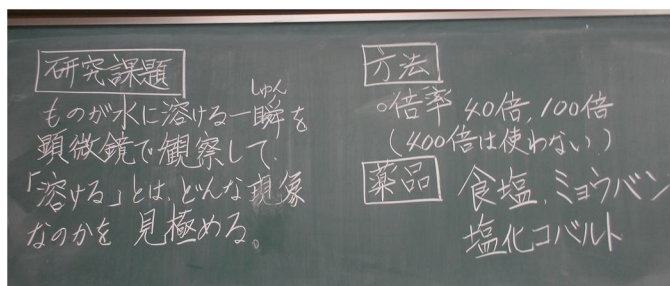 研究課題
しゅん
ものが水に溶ける一瞬を
顕微鏡で観察して、
「溶ける」とは、どんな現象
なのかを 見極める。
方法
○倍率 40倍, 100倍
(400倍は使わない)
薬品 食塩, ミョウバン
塩化コバルト